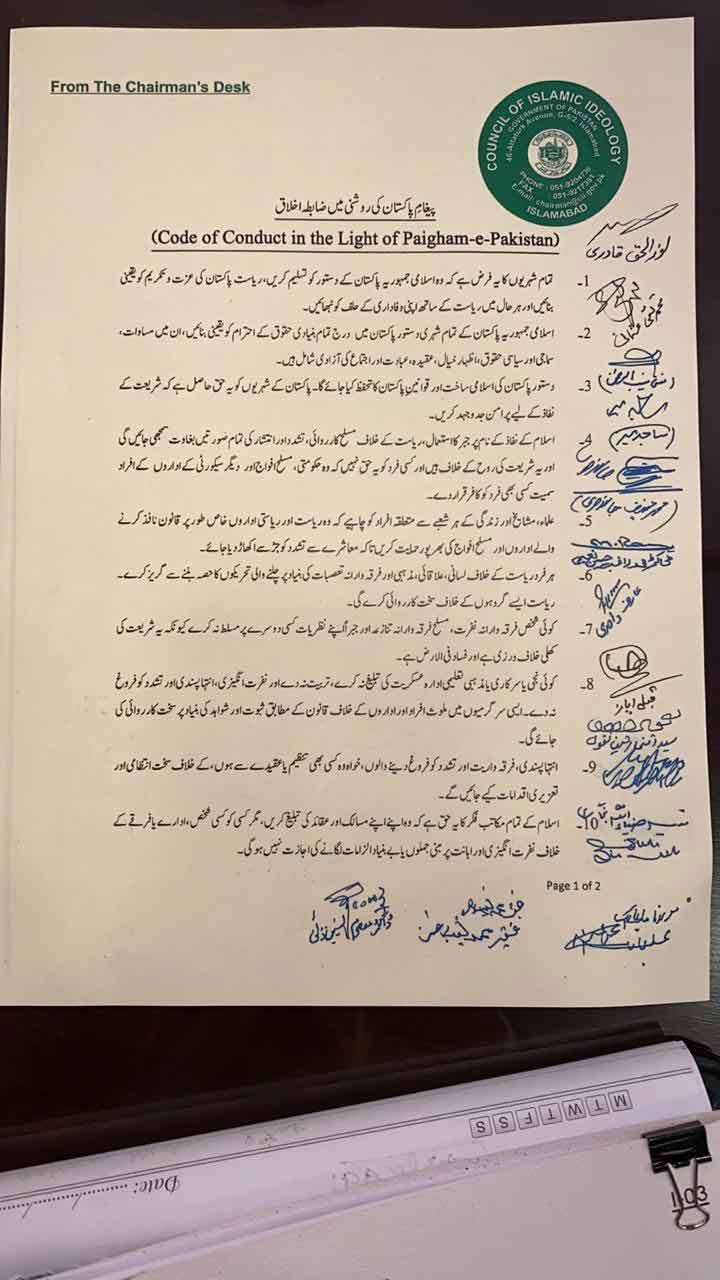 From The Chairman's Desk
COUNCIL OF ISLAMIC IDEOLOGY
GOVERNMENT OF PAKISTAN
46-Attaturk Avenue, G-5/2, Islamabad
PHONE : 051-9204736
FAX : 051-9217381
E-mail: chairman@cii.gov.pk
ISLAMABAD
پیغام پاکستان کی روشنی میں ضابطہ اخلاق
(Code of Conduct in the Light of Paigham-e-Pakistan)
نورالحق قادری
1۔ تمام شہریوں کا یہ فرض ہے کہ وہ اسلامی جمہوریہ پاکستان کے دستور کو تسلیم کریں، ریاست پاکستان کی عزت و تکریم کو یقینی
بنائیں اور ہر حال میں ریاست کے ساتھ اپنی وفاداری کے حلف کو نبھائیں۔
2۔ اسلامی جمہوریہ پاکستان کے تمام شہری دستور پاکستان میں درج تمام بنیادی حقوق کے احترام کو یقینی بنائیں، ان میں مساوات،
سماجی اور سیاسی حقوق، اظہار خیال، عقیدہ، عبادت اور اجتماع کی آزادی شامل ہیں۔
3۔ دستور پاکستان کی اسلامی ساخت اور قوانین پاکستان کا تحفظ کیا جائے گا۔ پاکستان کے شہریوں کو یہ حق حاصل ہے کہ شریعت کے
نفاذ کے لیے پرامن جدوجہد کریں۔
4۔ اسلام کے نفاذ کے نام پر جبر کا استعمال، ریاست کے خلاف مسلح کارروائی، تشدد اور انتشار کی تمام صورتیں بغاوت سمجھی جائیں گی
اور یہ شریعت کی روح کے خلاف ہیں اور کسی فرد کو یہ حق نہیں کہ وہ حکومتی، مسلح افواج اور دیگر سیکورٹی کے اداروں کے افراد
سمیت کسی بھی فرد کو کافر قرار دے۔
5۔ علماء، مشائخ اور زندگی کے ہر شعبے سے متعلقہ افراد کو چاہیے کہ وہ ریاست اور ریاستی اداروں خاص طور پر قانون نافذ کرنے
والے اداروں اور مسلح افواج کی بھرپور حمایت کریں تاکہ معاشرے سے تشدد کو جڑ سے اکھاڑ دیا جائے۔
6۔ ہر فرد ریاست کے خلاف لسانی، علاقائی، مذہبی اور فرقہ وارانہ تعصبات کی بنیاد پر چلنے والی تحریکوں کا حصہ بننے سے گریز کرے۔
ریاست ایسے گروہوں کے خلاف سخت کارروائی کرے گی۔
7۔ کوئی شخص فرقہ وارانہ نفرت، مسلح فرقہ وارانہ تنازعہ اور جبراً اپنے نظریات کسی دوسرے پر مسلط نہ کرے کیونکہ یہ شریعت کی
کھلی خلاف ورزی ہے اور فساد فی الارض ہے۔
8۔ کوئی نجی یا سرکاری یا مذہبی تعلیمی ادارہ عسکریت کی تبلیغ نہ کرے، تربیت نہ دے اور نفرت انگیزی، انتہا پسندی اور تشدد کو فروغ
نہ دے۔ ایسی سرگرمیوں میں ملوث افراد اور اداروں کے خلاف قانون کے مطابق ثبوت اور شواہد کی بنیاد پر سخت کارروائی کی
جائے گی۔
9۔ انتہا پسندی، فرقہ واریت اور تشدد کو فروغ دینے والوں، خواہ وہ کسی بھی تنظیم یا عقیدے سے ہوں، کے خلاف سخت انتظامی اور
تعزیری اقدامات کیے جائیں گے۔
10۔ اسلام کے تمام مکاتب فکر کا یہ حق ہے کہ وہ اپنے اپنے مسالک اور عقائد کی تبلیغ کریں، مگر کسی کو کسی شخص، ادارے یا فرقے کے
خلاف نفرت انگیزی اور اہانت پر مبنی جملوں یا بے بنیاد الزامات لگانے کی اجازت نہیں ہو گی۔
Page 1 of 2
M T W T F S S
Date: